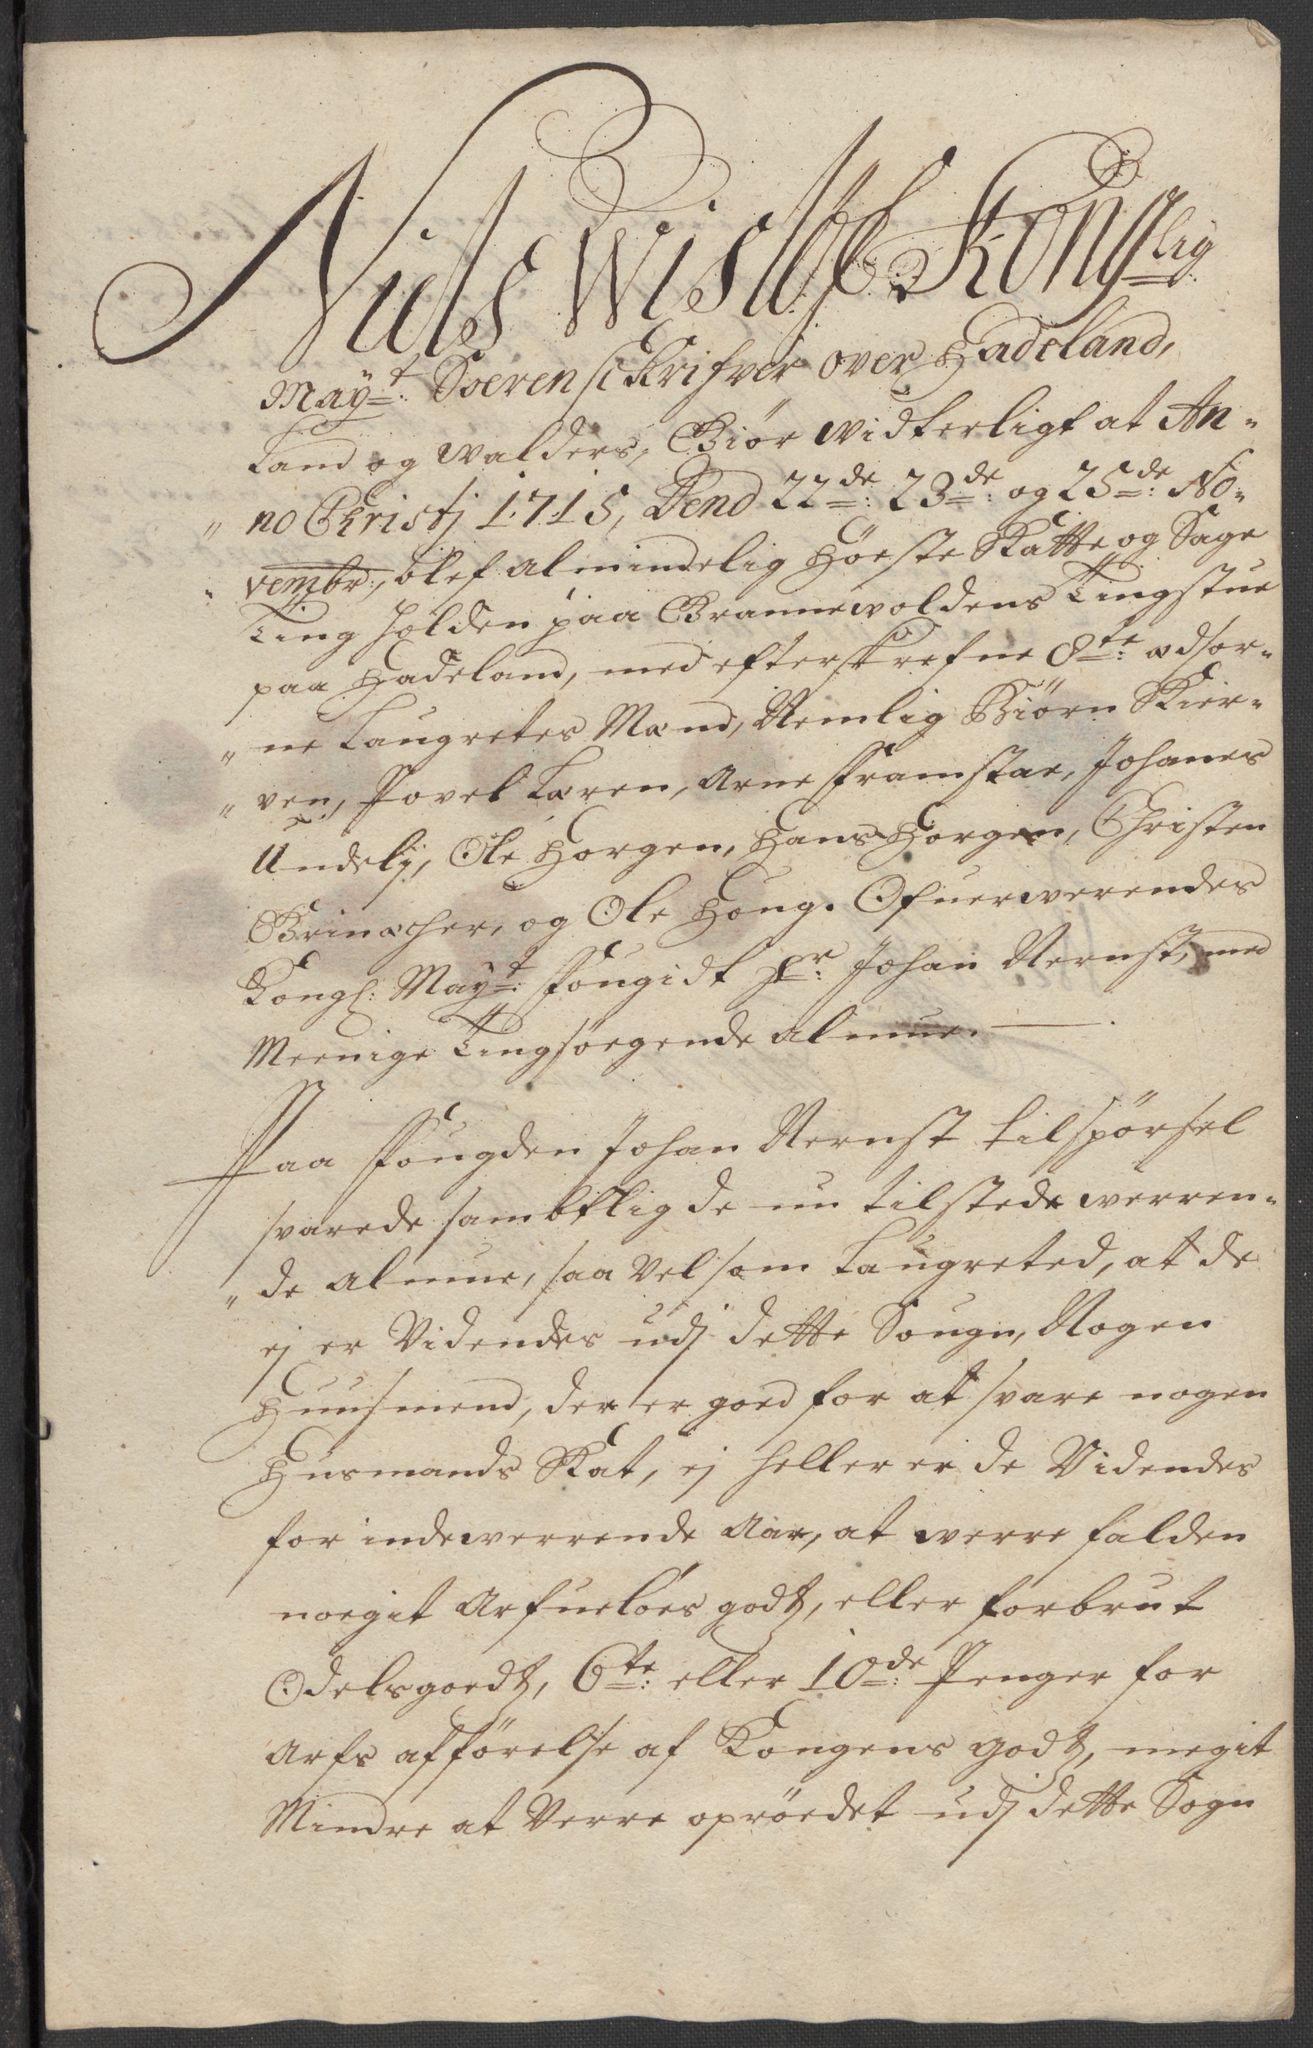 Niels Wisløf Konglig
May:t Soerenschrifver over Hadeland,
Land og Walders, Giør Widterligt at An-
" no Christj 1715, Dend 22de: 23de: og 25de: No-
" vembr:, blef Almindelig Høeste Skatte og Sage
Ting holden paa Grannewoldens Tingstue
paa Hadeland, med efterskrefne 8te: ædsor-
" ne Laugretes Mænd, Nemlig Biørn Skier-
" ven, Povel Læren, Arne Framstae, Johanes
Undelj, Ole Horgen, Hans Horgen, Christen
Grinacher, og Ole Houg. Ofuerwerendes
Kongl: May:t Fougidt Sr: Johan Nernst, med
Meenige Tingsøegende Almue.
Paa Fougden Johan Nernst tilspørsel
svarede sambtlig de nu tilstede werren-
" de Almue, saa Vel som Laugreted, at de
ej er Videndes udj dette Sougn, Nogen
Huusmend, der er goed for at svare nogen
Husmands Skat, ej heller er de Videndes
for indewerrende Aar, at werre falden
noegit Arfueløes godz, eller forbrut
Odelsgoedz, 6te: eller 10de: Penger for
Arfs afførelse af Kongens godz, megit
Mindre at Verre oprøedet udj dette Sogn